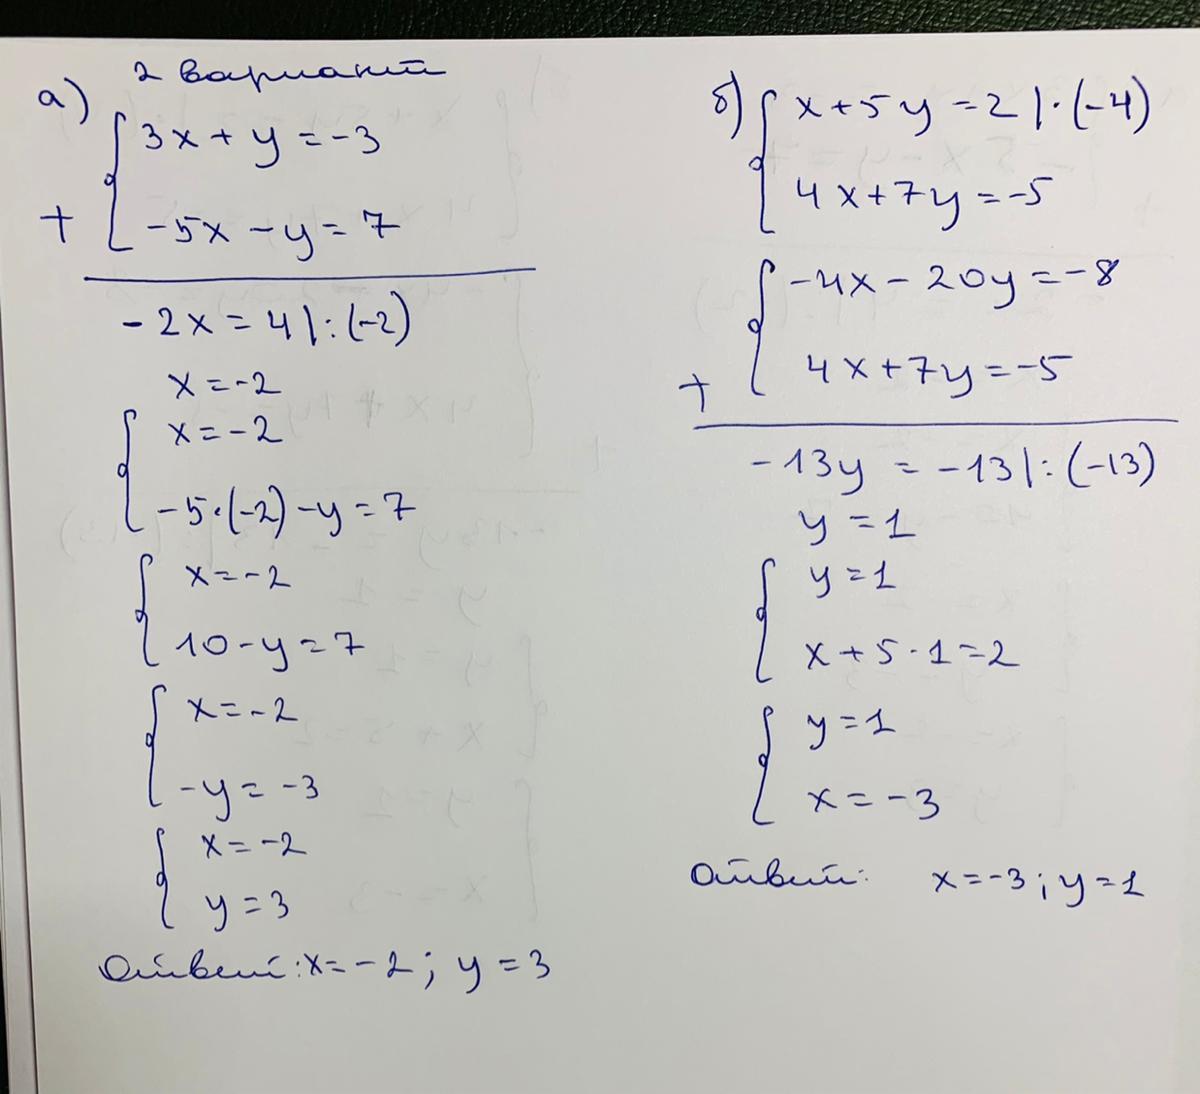 2 вариант
а)
3x + y = -3
+
-5x - y = 7
-2x = 4 |: (-2)
x = -2
x = -2
-5·(-2) - y = 7
x = -2
10 - y = 7
x = -2
-y = -3
x = -2
y = 3
Ответ: x = -2; y = 3
б)
x + 5y = 2 |· (-4)
4x + 7y = -5
-4x - 20y = -8
+
4x + 7y = -5
-13y = -13 |: (-13)
y = 1
y = 1
x + 5 · 1 = 2
y = 1
x = -3
Ответ: x = -3; y = 1